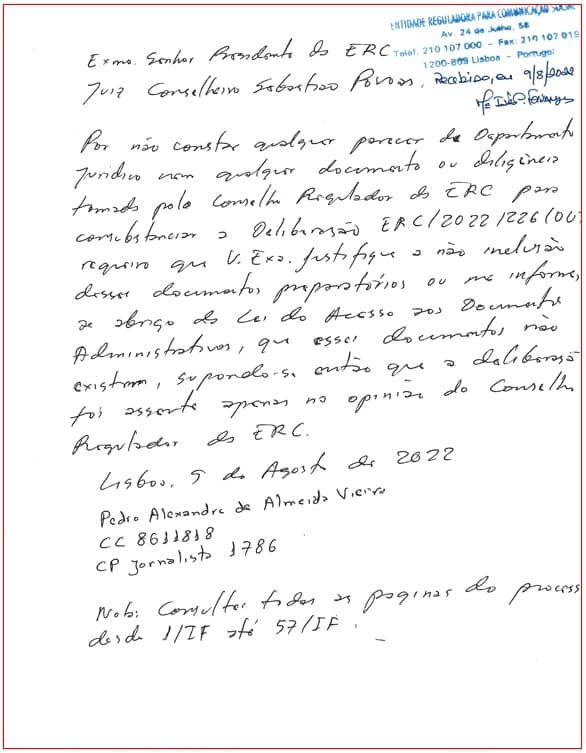 ENTIDADE REGULADORA PARA COMUNICAÇÃO SOCIAL
Av. 24 de Julho, 58
Telef. 210 107 000 - Fax: 210 107 019
1200-869 Lisboa - Portugal
Recebido, em 9/8/2022
Exmo. Senhor Presidente da ERC
Juiz Conselheiro Sebastião Póvoas,
Por não constar qualquer parecer do Departamento
Jurídico nem qualquer documento ou diligência
tomada pelo Conselho Regulador da ERC para
consubstanciar a Deliberação ERC/2022/226/OUT
requeiro que V. Exa. justifique a não inclusão
desses documentos preparatórios ou me informe,
ao abrigo da Lei do Acesso aos Documentos
Administrativos, que esses documentos não
existem, supondo-se então que a deliberação
foi assente apenas na opinião do Conselho
Regulador da ERC.
Lisboa, 9 de Agosto de 2022
Pedro Alexandre de Almeida Vieira
CC 8611818
CP Jornalista 1786
Nota: Consultei todas as páginas do processo
desde 1/IF até 57/IF.